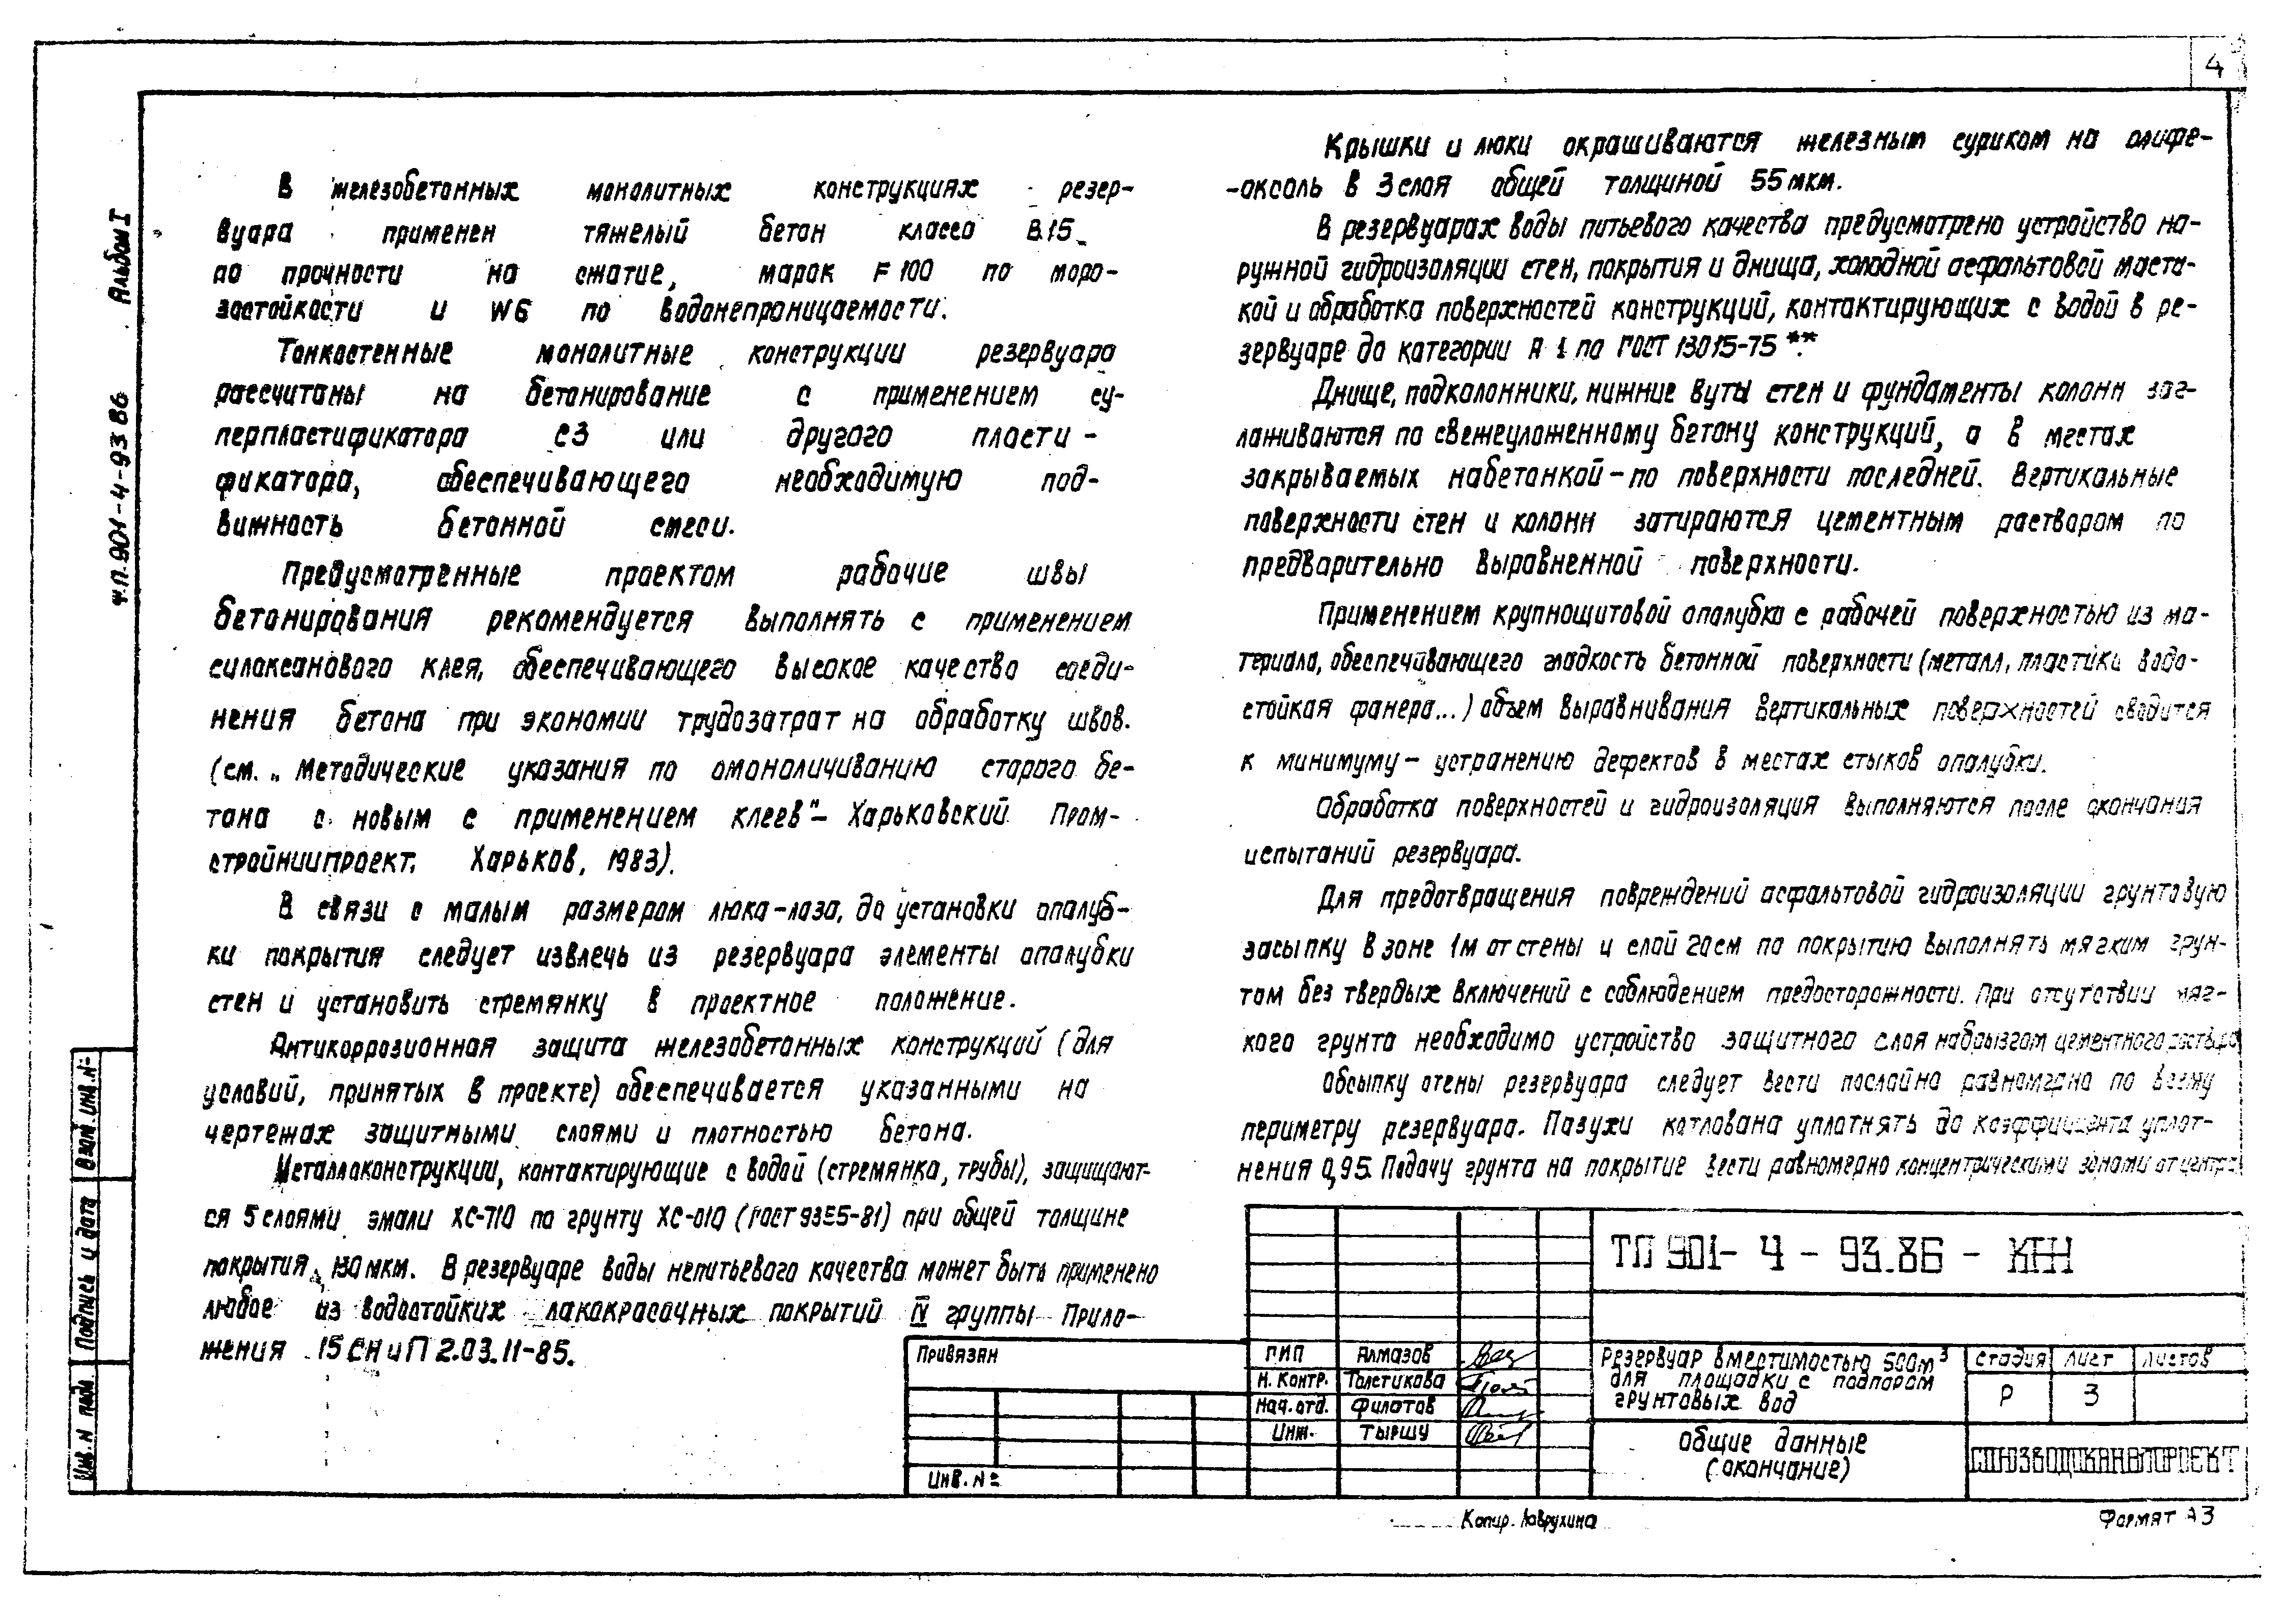 4
Альбом I
т.п. 901-4-93 86
В железобетонных монолитных конструкциях резер-
вуара применен тяжелый бетон класса В15
по прочности на сжатие, марок F100 по моро-
зостойкости и W6 по водонепроницаемости.
Тонкостенные монолитные конструкции резервуара
рассчитаны на бетонирование с применением су-
перпластификатора С3 или другого пласти-
фикатора, обеспечивающего необходимую под-
вижность бетонной смеси.
Предусмотренные проектом рабочие швы
бетонирования рекомендуется выполнять с применением
силоксанового клея, обеспечивающего высокое качество соеди-
нения бетона при экономии трудозатрат на обработку швов.
(см. „Методические указания по омоноличиванию старого бе-
тона с новым с применением клеев" – Харьковский Пром-
стройниипроект. Харьков, 1983).
В связи с малым размером люка-лаза, до установки опалуб-
ки покрытия следует извлечь из резервуара элементы опалубки
стен и установить стремянку в проектное положение.
Антикоррозионная защита железобетонных конструкций (для
условий, принятых в проекте) обеспечивается указанными на
чертежах защитными слоями и плотностью бетона.
Металлоконструкции, контактирующие с водой (стремянка, трубы), защищают-
ся 5 слоями эмали ХС-710 по грунту ХС-010 (ГОСТ 9355-81) при общей толщине
покрытия 130 мкм. В резервуаре воды непитьевого качества может быть применено
любое из водостойких лакокрасочных покрытий IV группы Прило-
жения 15 СНиП 2.03.11-85.
Крышки и люки окрашиваются железным суриком на олифе-
-оксоль в 3 слоя общей толщиной 55 мкм.
В резервуарах воды питьевого качества предусмотрено устройство на-
ружной гидроизоляции стен, покрытия и днища, холодной асфальтовой масти-
кой и обработка поверхностей конструкций, контактирующих с водой в ре-
зервуаре до категории А 1 по ГОСТ 13015-75**.
Днище, подколонники, нижние вуты стен и фундаменты колонн заг-
лаживаются по свежеуложенному бетону конструкций, а в местах
закрываемых набетонкой – по поверхности последней. Вертикальные
поверхности стен и колонн затираются цементным раствором по
предварительно выравненной поверхности.
Применением крупнощитовой опалубки с рабочей поверхностью из ма-
териала, обеспечивающего гладкость бетонной поверхности (металл, пластики водо-
стойкая фанера...) объем выравнивания вертикальных поверхностей сводится
к минимуму – устранению дефектов в местах стыков опалубки.
Обработка поверхностей и гидроизоляция выполняются после окончания
испытаний резервуара.
Для предотвращения повреждений асфальтовой гидроизоляции грунтовую
засыпку в зоне 1м от стены и слой 20см по покрытию выполнять мягким грун-
том без твердых включений с соблюдением предосторожности. При отсутствии мяг-
кого грунта необходимо устройство защитного слоя набрызгом цементного раствора
Обсыпку стены резервуара следует вести послойно равномерно по всему
периметру резервуара. Пазухи котлована уплотнять до коэффициента уплот-
нения 0,95. Подачу грунта на покрытие вести равномерно концентрическими зонами от центра
ТП 901-4-93.86-КЖ
Привязан
Инв. №
ГИП Алмазов
Н. контр. Толстикова
Нач. отд. Филатов
Инж. Тыршу
Резервуар вместимостью 500м³
для площадки с подпором
грунтовых вод
Стадия Лист Листов
Р 3
Общие данные
(окончание)
СОЮЗВОДОКАНАЛПРОЕКТ
Взам. инв. №
Подпись и дата
Инв. № подл.
Копир. Лаврухина
Формат А3